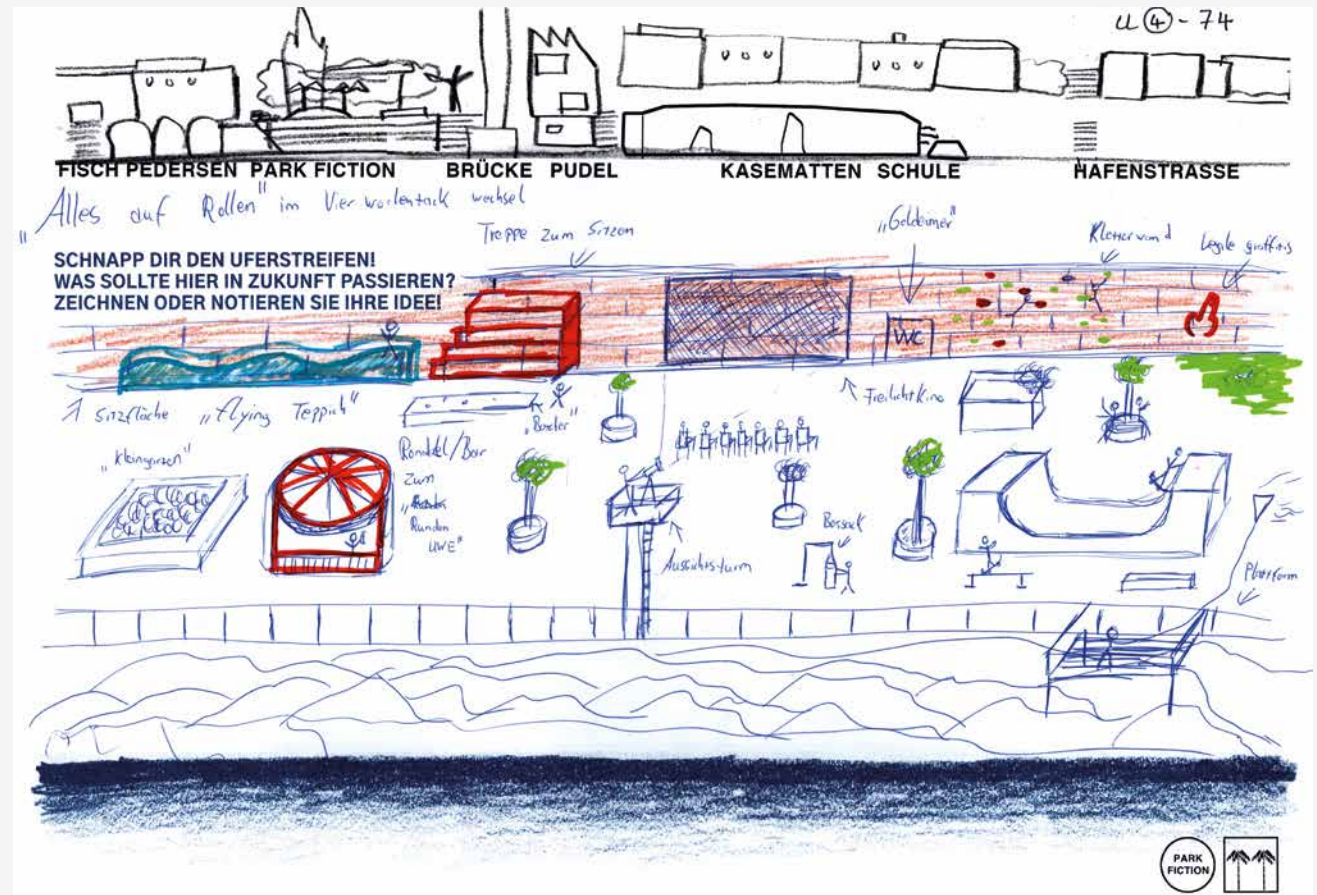 U ④ - 74
FISCH PEDERSEN PARK FICTION BRÜCKE PUDEL KASEMATTEN SCHULE HAFENSTRASSE
"Alles auf Rollen" im Vier wochentack wechsel
SCHNAPP DIR DEN UFERSTREIFEN!
WAS SOLLTE HIER IN ZUKUNFT PASSIEREN?
ZEICHNEN ODER NOTIEREN SIE IHRE IDEE!
Treppe zum Sitzen
"Goldeimer"
Kletterwand
Legale graffitis
WC
Sitzfläche "flying Teppich"
Freilicht Kino
"Kleingarten"
/Bar
zum
Runden
UWE"
Aussichtsturm
Plattform
PARK
FICTION